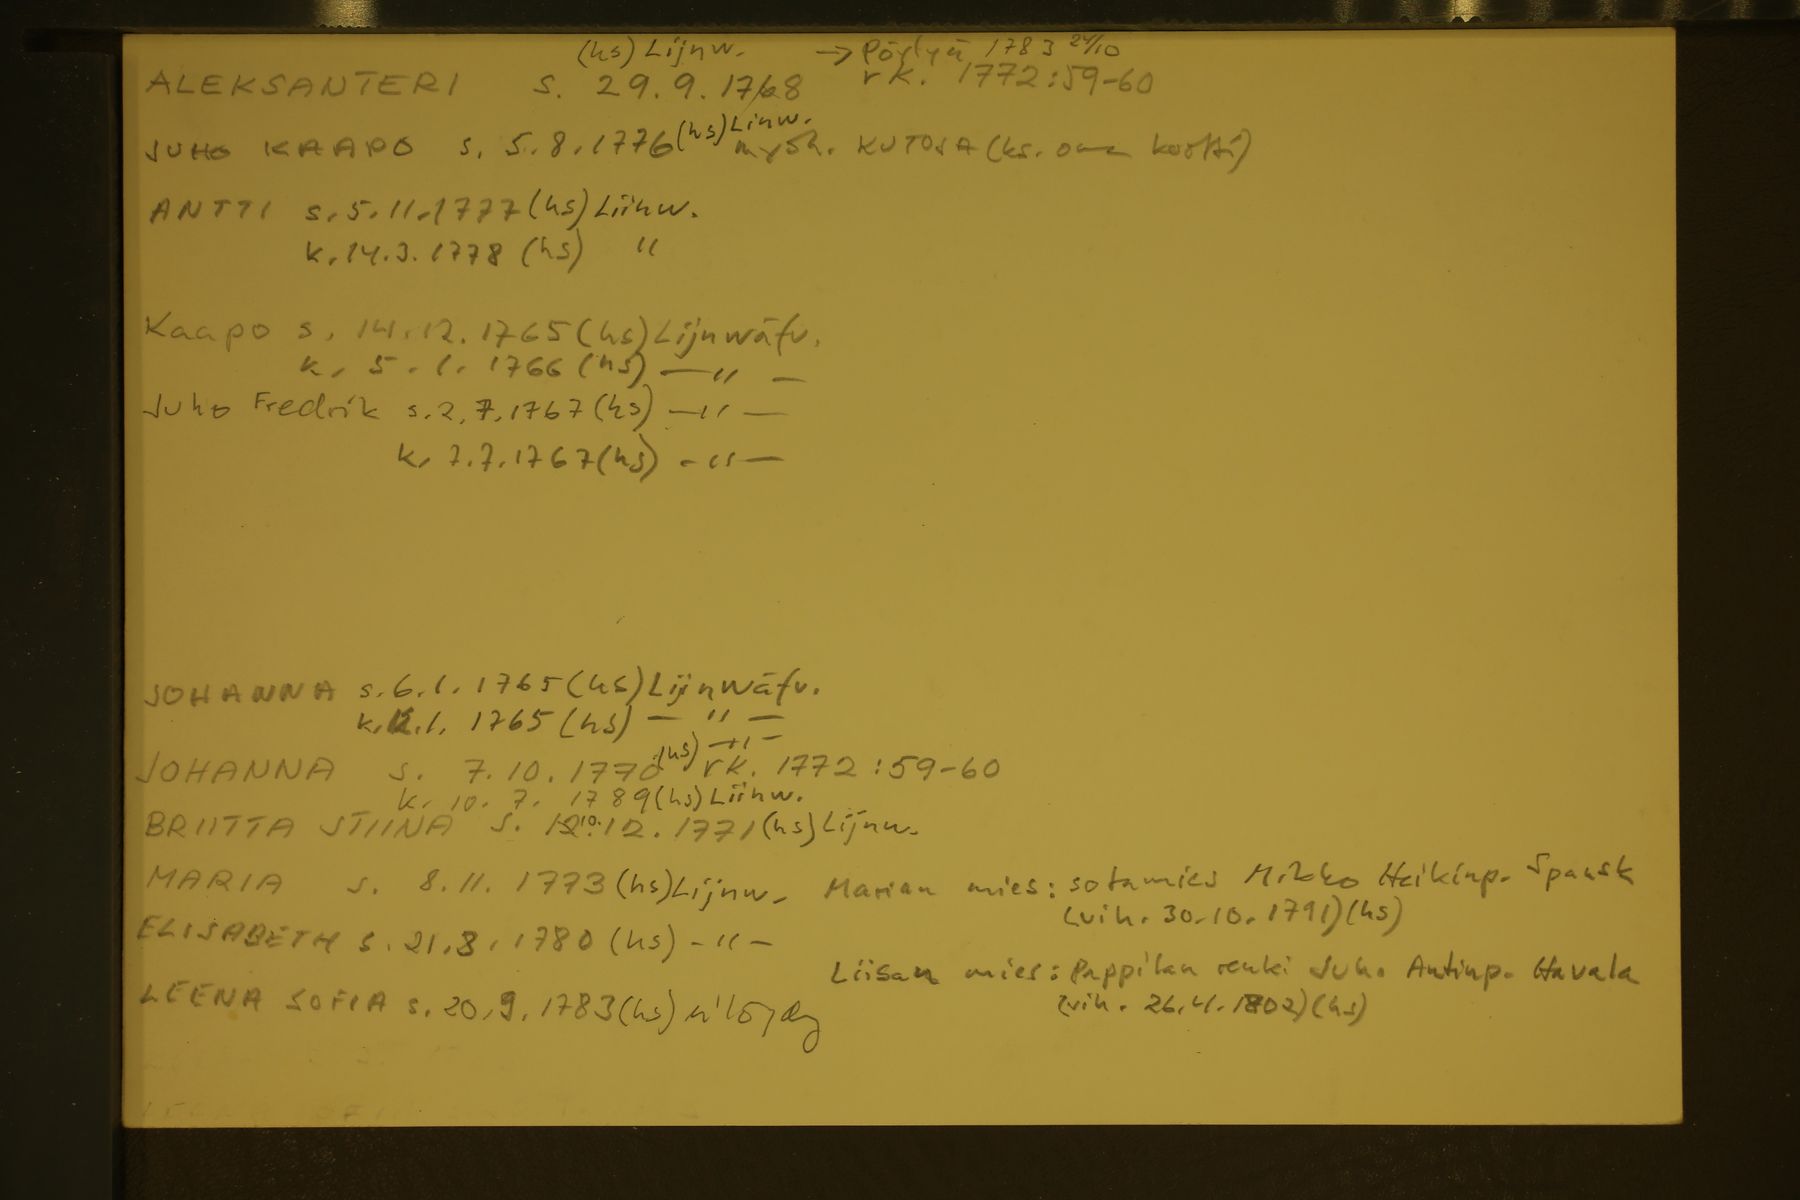 (hs) Lijnw. → Pöytyä 1783 24/10
ALEKSANTERI s. 29.9.1768 rk. 1772:59-60
JUHO KAAPO s. 5.8.1776 (hs) Linw. myöh. KUTOJA (ks. oma kortti)
ANTTI s. 5.11.1777 (hs) Liinw.
k. 14.3.1778 (hs) "
Kaapo s. 14.12.1765 (hs) Lijnwäfv.
k. 5.1.1766 (hs) —"—
Juho Fredrik s. 2.7.1767 (hs) —"—
k. 7.7.1767 (hs) —"—
JOHANNA s. 6.1.1765 (hs) Lijnwäfv.
k. 12.1.1765 (hs) —"—
(hs) —"—
JOHANNA s. 7.10.1770 rk. 1772:59-60
k. 10.7.1789 (hs) Liinw.
BRIITTA STIINA s. 10.12.1771 (hs) Lijnw.
MARIA s. 8.11.1773 (hs) Lijnw. Marian mies: sotamies Mikko Heikinp. Spansk
(vih. 30.10.1791) (hs)
ELISABETH s. 21.8.1780 (hs) -"-
Liisan mies: Pappilan renki Juho Antinp. Havala
LEENA SOFIA s. 20.9.1783 (hs) ei löydy (vih. 26.4.1802) (hs)